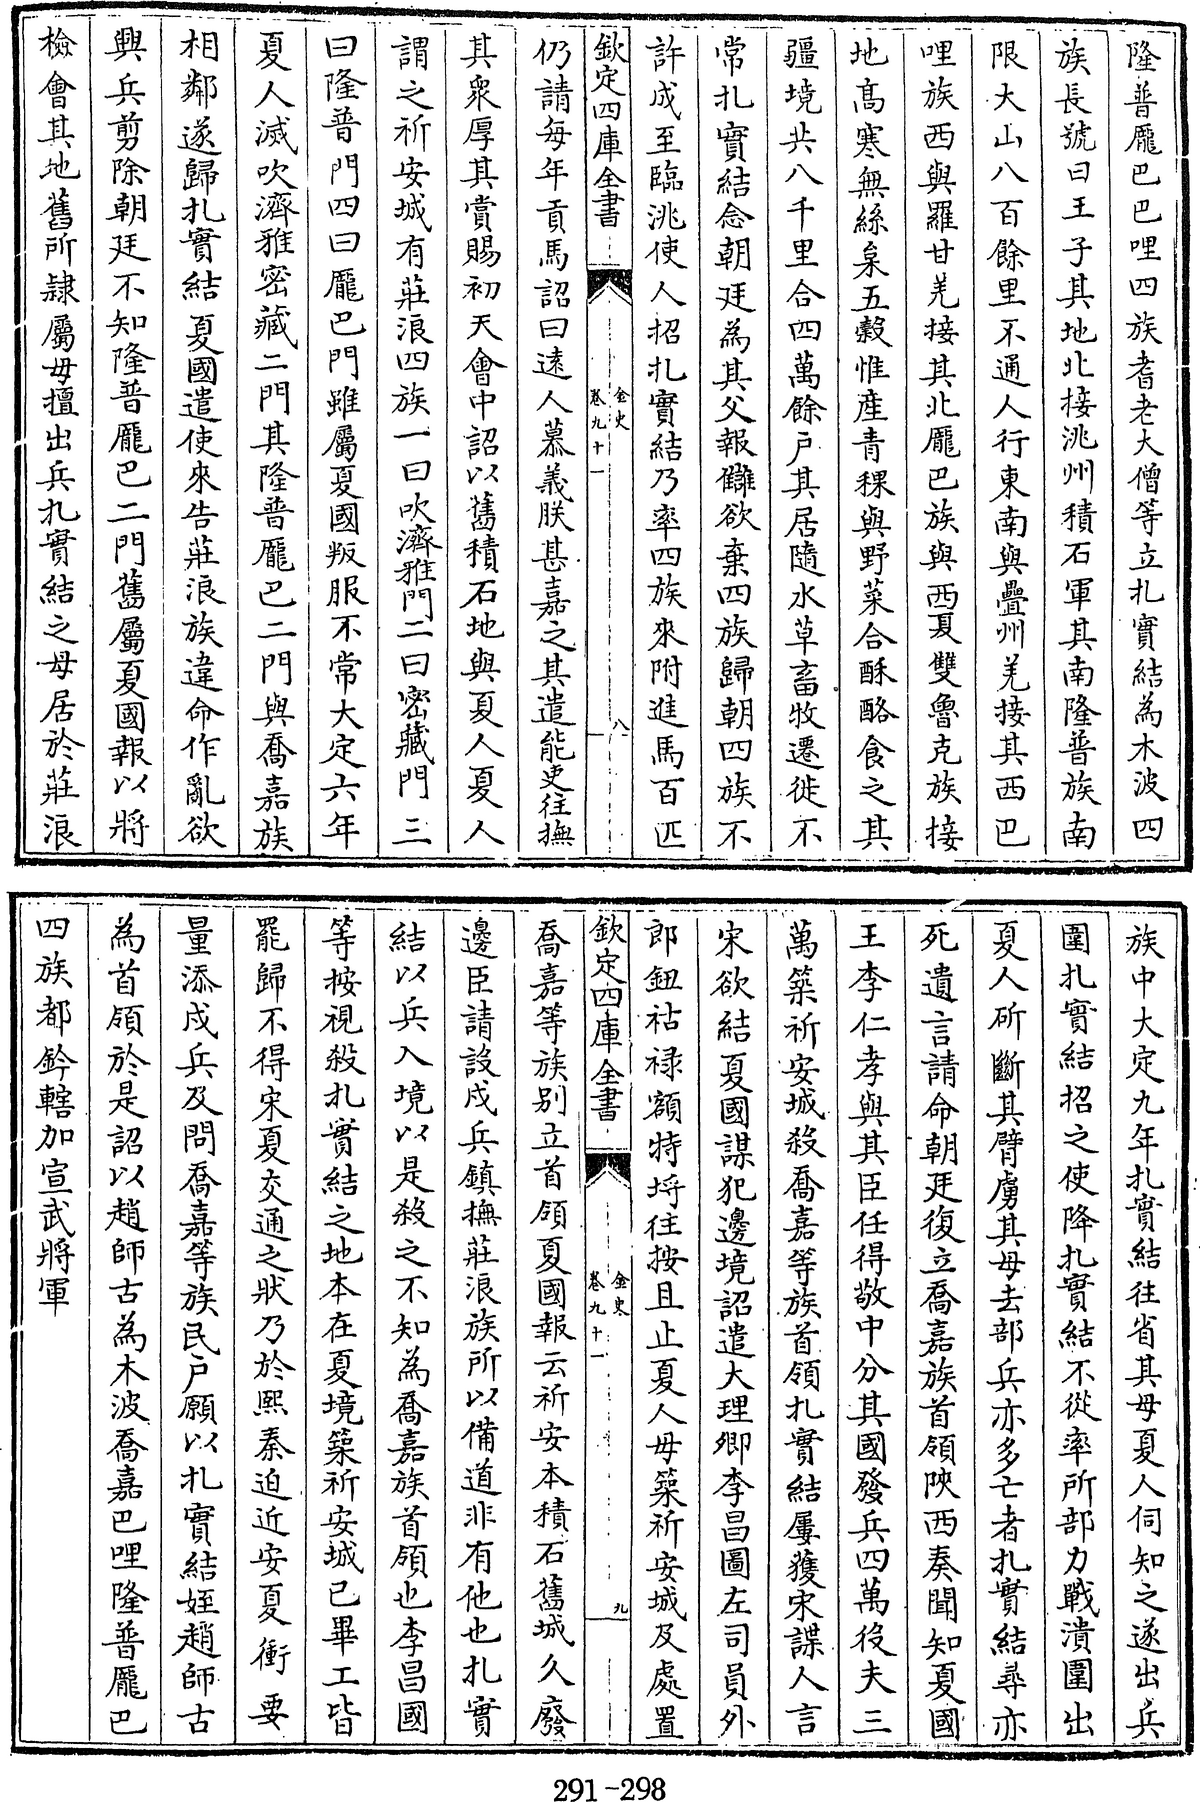 隆普龎巴巴哩四族耆老大僧等立扎實結為木波四
族長號曰王子其地北接洮州積石軍其南隆普族南
限大山八百餘里不通人行東南與疊州羌接其西巴
哩族西與羅甘羌接其北龎巴族與西夏雙魯克族接
地高寒無絲枲五穀惟産青稞與野菜合酥酪食之其
疆境共八千里合四萬餘户其居隨水草畜牧遷徙不
常扎實結念朝廷為其父報讎欲棄四族歸朝四族不
許成至臨洮使人招扎實結乃率四族來附進馬百匹
欽定四庫全書
金史
卷九十一
八
仍請每年貢馬詔曰遠人慕義朕甚嘉之其遣能吏往撫
其衆厚其賞賜初天會中詔以舊積石地與夏人夏人
謂之祈安城有莊浪四族一曰吹濟雅門二曰密藏門三
曰隆普門四曰龎巴門雖屬夏國叛服不常大定六年
夏人滅吹濟雅密藏二門其隆普龎巴二門與喬嘉族
相鄰遂歸扎實結夏國遣使來告莊浪族違命作亂欲
興兵剪除朝廷不知隆普龎巴二門舊屬夏國報以將
檢會其地舊所隸屬毋擅出兵扎實結之母居於莊浪
族中大定九年扎實結往省其母夏人伺知之遂出兵
圍扎實結招之使降扎實結不從率所部力戰潰圍出
夏人斫斷其臂虜其母去部兵亦多亡者扎實結尋亦
死遺言請命朝廷復立喬嘉族首領陜西奏聞知夏國
王李仁孝與其臣任得敬中分其國發兵四萬役夫三
萬築祈安城殺喬嘉等族首領扎實結屢獲宋諜人言
宋欲結夏國謀犯邊境詔遣大理卿李昌圖左司員外
郎鈕祜禄額特埒往按且止夏人毋築祈安城及處置
欽定四庫全書
金史
卷九十一
九
喬嘉等族别立首領夏國報云祈安本積石舊城久廢
邊臣請設戍兵鎮撫莊浪族所以備道非有他也扎實
結以兵入境以是殺之不知為喬嘉族首領也李昌國
等按視殺扎實結之地本在夏境築祈安城已畢工皆
罷歸不得宋夏交通之狀乃於熙秦迫近安夏衝要
量添戍兵及問喬嘉等族民户願以扎實結姪趙師古
為首領於是詔以趙師古為木波喬嘉巴哩隆普龎巴
四族都鈐轄加宣武將軍
291-298